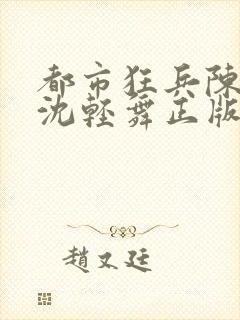 都市狂兵陳
沈輕舞正版
趙又廷